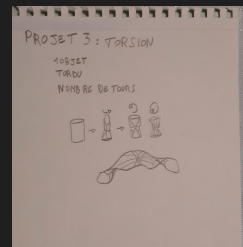 PROJET 3 : TORSION
1 OBJET
TORDU
NOMBRE DE TOURS